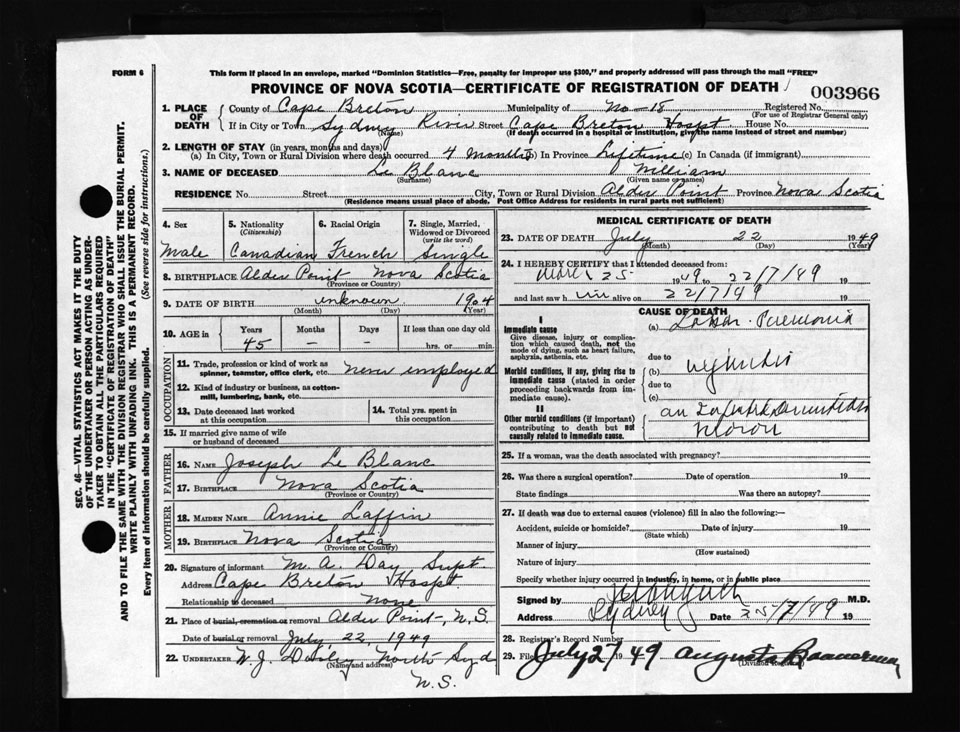 FORM 6
This form if placed in an envelope, marked "Dominion Statistics—Free, penalty for improper use $300," and properly addressed will pass through the mail "FREE"
PROVINCE OF NOVA SCOTIA—CERTIFICATE OF REGISTRATION OF DEATH
003966
1. PLACE OF DEATH
County of Cape Breton Municipality of No-18 Registered No.
(For use of Registrar General only)
If in City or Town Sydney River Street Cape Breton Hospt House No.
(Name) (If death occurred in a hospital or institution, give the name instead of street and number)
2. LENGTH OF STAY (in years, months and days)
(a) In City, Town or Rural Division where death occurred 4 months (b) In Province Lifetime (c) In Canada (if immigrant)
3. NAME OF DECEASED Le Blanc William
(Surname) (Given name or names)
RESIDENCE No. Street City, Town or Rural Division Alder Point Province Nova Scotia
(Residence means usual place of abode. Post Office Address for residents in rural parts not sufficient)
4. Sex Male
5. Nationality (Citizenship) Canadian
6. Racial Origin French
7. Single, Married, Widowed or Divorced (write the word) Single
8. BIRTHPLACE Alder Point Nova Scotia
(Province or Country)
9. DATE OF BIRTH unknown 1904
(Month) (Day) (Year)
10. AGE in Years Months Days If less than one day old
45 – – hrs. or min.
OCCUPATION
11. Trade, profession or kind of work as spinner, teamster, office clerk, etc. Never employed
12. Kind of industry or business, as cotton-mill, lumbering, bank, etc.
13. Date deceased last worked at this occupation
14. Total yrs. spent in this occupation
15. If married give name of wife or husband of deceased
FATHER
16. NAME Joseph Le Blanc
17. BIRTHPLACE Nova Scotia
(Province or Country)
MOTHER
18. MAIDEN NAME Annie Laffin
19. BIRTHPLACE Nova Scotia
(Province or Country)
20. Signature of informant M. A. Day Supt.
Address Cape Breton Hospt.
Relationship to deceased None
21. Place of burial, cremation or removal Alder Point, N.S.
Date of burial or removal July 22 1949
22. UNDERTAKER W. J. North Syd
(Name and address)
N.S.
MEDICAL CERTIFICATE OF DEATH
23. DATE OF DEATH July 22 1949
(Month) (Day) (Year)
24. I HEREBY CERTIFY that I attended deceased from:
25 1949 22/7/49 19
and last saw him alive on 22/7/49 19
CAUSE OF DEATH
I
Immediate cause
Give disease, injury or complication which caused death, not the mode of dying, such as heart failure, asphyxia, asthenia, etc.
(a) Lobar Pneumonia
due to
Morbid conditions, if any, giving rise to immediate cause (stated in order proceeding backwards from immediate cause)
(b)
due to
(c)
II
Other morbid conditions (if important) contributing to death but not causally related to immediate cause.
Moron
25. If a woman, was the death associated with pregnancy?
26. Was there a surgical operation? Date of operation 19
State findings Was there an autopsy?
27. If death was due to external causes (violence) fill in also the following:—
Accident, suicide or homicide? Date of injury 19
(State which)
Manner of injury
(How sustained)
Nature of injury
Specify whether injury occurred in industry, in home, or in public place
Signed by M.D.
Address Sydney Date 25/7/49 19
28. Registrar's Record Number
29. Filed July 27 1949 Augusta
(Division Registrar)
SEC. 46—VITAL STATISTICS ACT MAKES IT THE DUTY
OF THE UNDERTAKER OR PERSON ACTING AS UNDER-
TAKER TO OBTAIN ALL THE PARTICULARS REQUIRED
IN THE "CERTIFICATE OF REGISTRATION OF DEATH"
AND TO FILE THE SAME WITH THE DIVISION REGISTRAR WHO SHALL ISSUE THE BURIAL PERMIT.
WRITE PLAINLY WITH UNFADING INK. THIS IS A PERMANENT RECORD.
Every item of information should be carefully supplied. (See reverse side for instructions.)